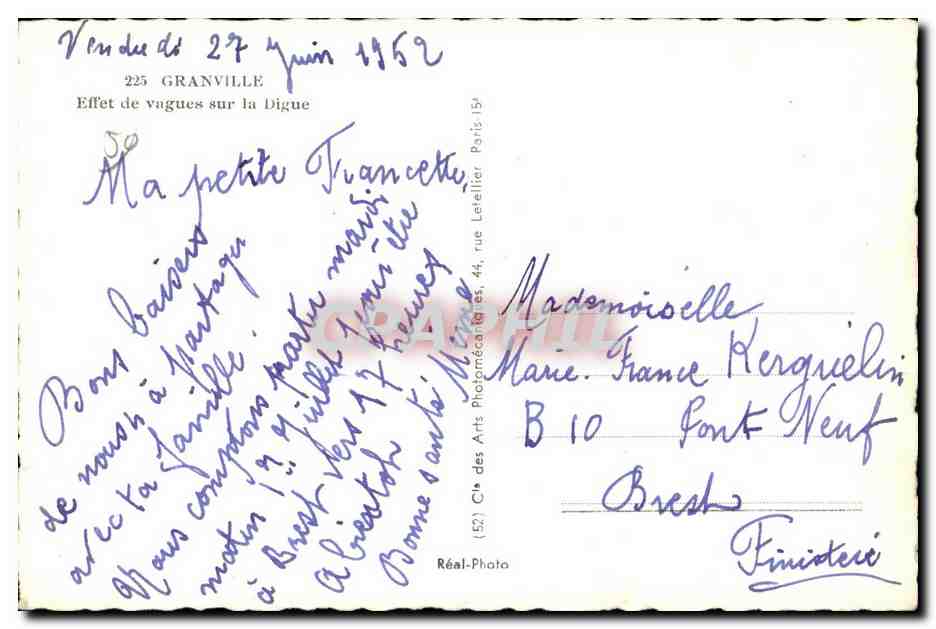 Vendredi 27 Juin 1952
225 GRANVILLE
Effet de vagues sur la Digue
50
Ma petite Francette,
Bons baisers
de nous à partager
avec ta famille.
Nous comptons partir mardi
matin 1er Juillet pour être
à Brest vers 17 heures
A bientôt
Bonne santé
(52) Cie des Arts Photomécaniques, 44, rue Letellier Paris-15e
Réal-Photo
GRAPHIL
Mademoiselle
Marie-France Kerguelin
B 10 Pont Neuf
Brest
Finistère